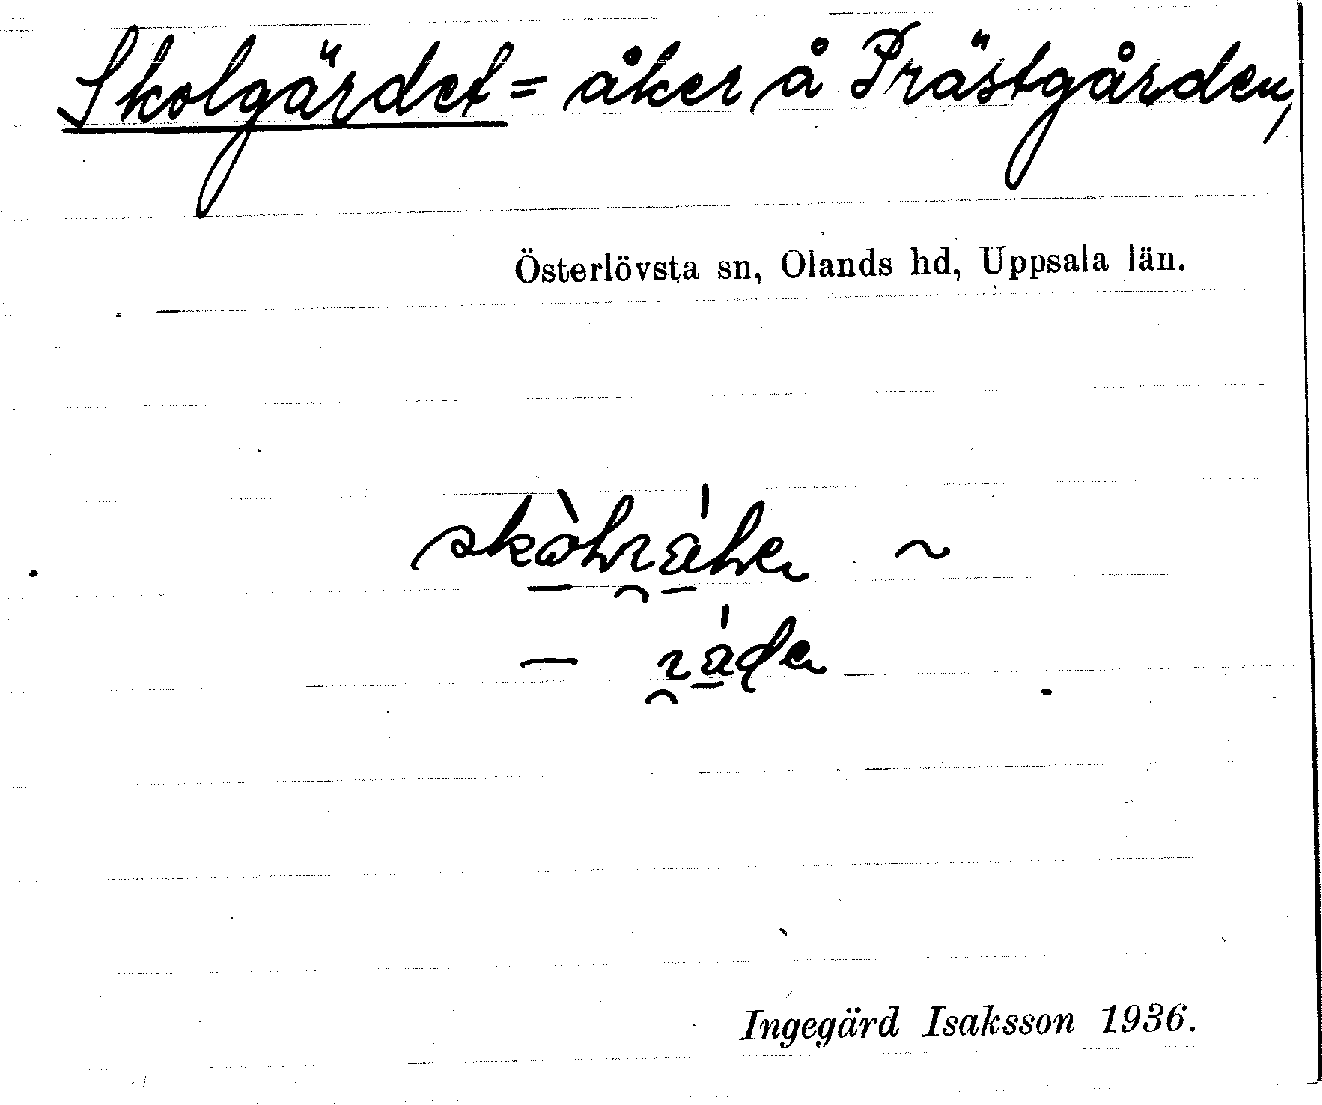 Skolgärdet = åker å Prästgården,
Österlövsta sn, Olands hd, Uppsala län.
~
—
Ingegärd Isaksson 1936.